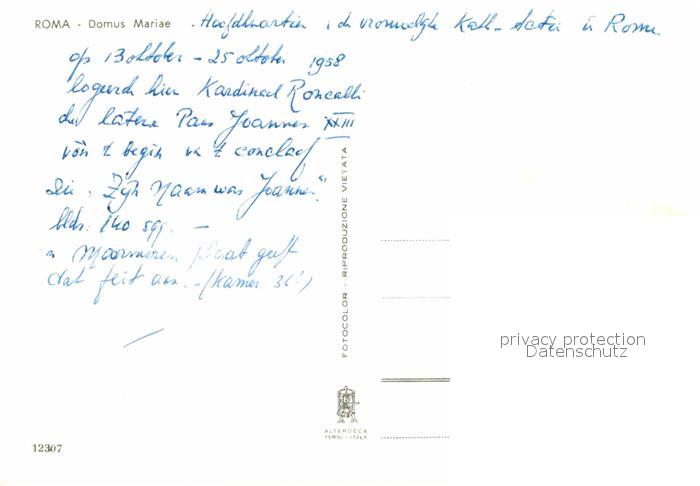 ROMA - Domus Mariae . Hoofdkwartier v/d vrouwelijke Kath. Actie in Rome.
op 13 oktober - 25 oktober 1958
logeerde hier Kardinaal Roncalli
de latere Paus Joannes XXIII
vóór 't begin v/h 't conclaaf
Zie: "Zijn Naam was Joannes".
bldz. 140 sqq. —
'n Marmeren plaat geeft
dat feit aan. (Kamer 36!)
FOTOCOLOR - RIPRODUZIONE VIETATA
privacy protection
Datenschutz
ALTEROCCA
TERNI - ITALY
12307